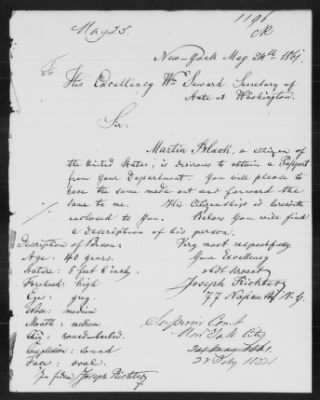 1196
May 25.
New-York May 24th 1867.
To
His Excellency Wm Seward Secretary of
State at Washington.
Sir:
Martin Black, a citizen of
the United States, is desirous to obtain a Passport
from your Department. You will please to
have the same made out and forward the
same to me. His Citizenship is herewith
enclosed to you. Below you will find
a description of his person.
Description of Person:
Very most respectfully
Your Excellency
Age: 40 years.
obdt Servant
Stature: 5 feet 8 inch.
Joseph Richter
Forehead: high
77 Nassau St. N.Y.
Eyes: grey.
Nose: medium
Mouth: medium
Superior Court
Chin: round
New York City
Complexion: sound
Face: oval.
Joseph Richter